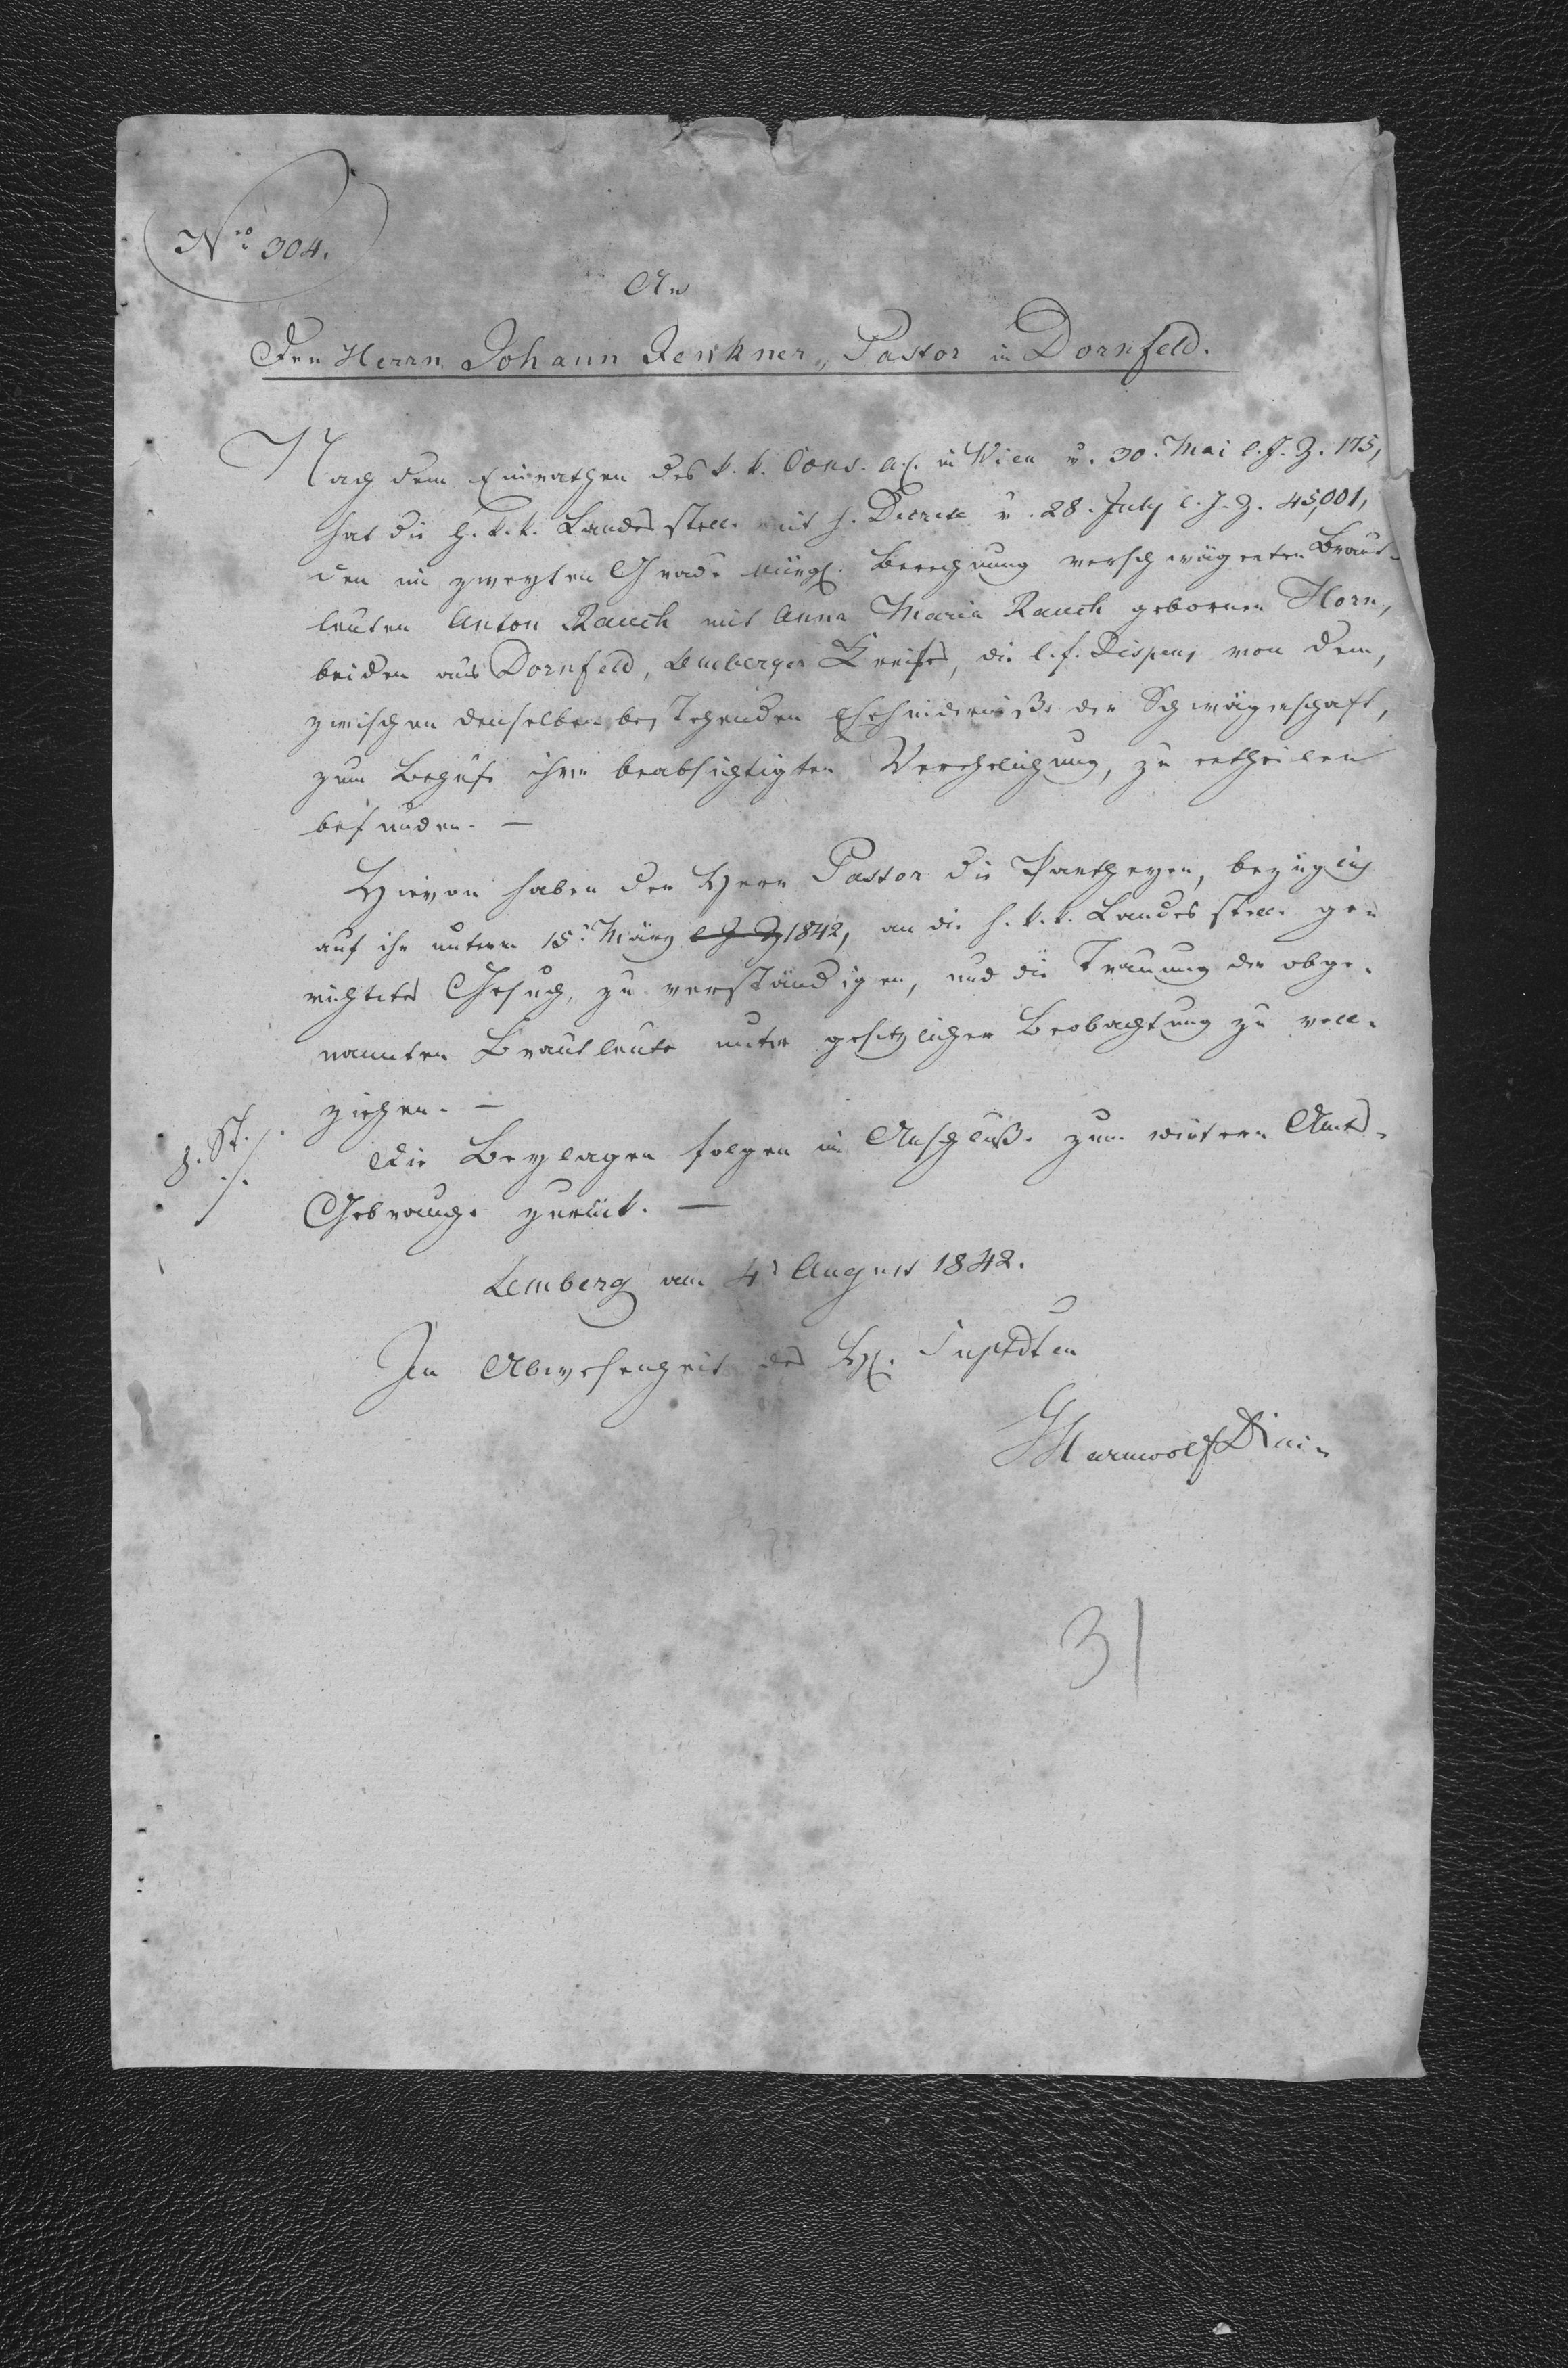 Nro 304.
An
Den Herrn Johann Jenkner, Pastor in Dornfeld.
Nach dem Einrathen des k. k. Cons. A. C. in Wien v. 30. Mai l. J. Z. 175,
hat die h. k. k. Landesstelle mit h. Decrete v. 28. July l. J. Z. 45,001,
den im zweyten Grade bürgl. Berechnung verschwägerten Braut-
leuten Anton Rauch mit Anna Maria Rauch gebornen Horn,
beiden aus Dornfeld, Lemberger Kreises, die l. f. Dispens von dem,
zwischen denselben bestehenden Ehehinderniße der Schwägerschaft,
zum Behufe ihrer beabsichtigten Verehelichung, zu ertheilen
befunden. —
Hievon haben der Herr Pastor die Partheyen, bezüglich
auf ihr unterm 15. März l J Z 1842, an die h. k. k. Landesstelle ge-
richtetes Gesuch, zu verständigen, und die Trauung der obge-
nannten Brautleute unter gesetzlicher Beobachtung zu voll-
ziehen. —
Die Beylagen folgen im Anschluße zum weitern Amts-
Gebrauche zurück. —
Lemberg am 4. August 1842.
In Abwesenheit des H. Suptdten
31